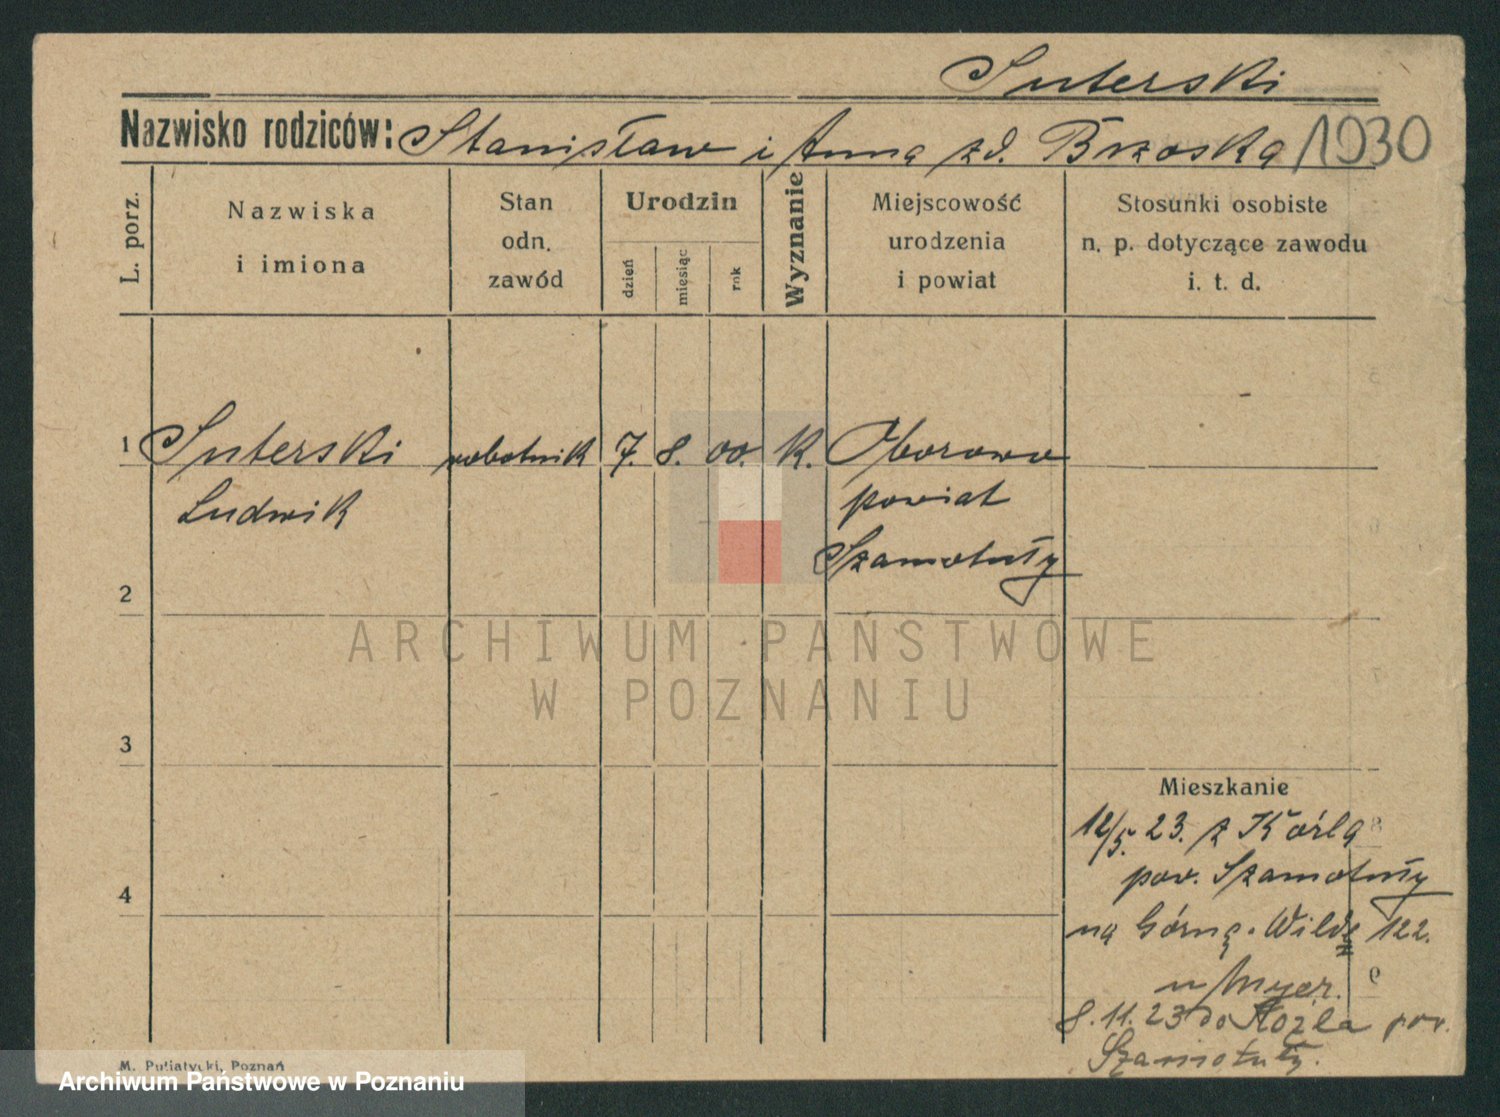 Suterski
Nazwisko rodziców: Stanisław i Anna zd. Brzoska 1930
L. porz.
Nazwiska
i imiona
Stan
odn.
zawód
Urodzin
dzień
miesiąc
rok
Wyznanie
Miejscowość
urodzenia
i powiat
Stosunki osobiste
n. p. dotyczące zawodu
i. t. d.
1 Suterski robotnik 7. 8. 00. K. Oborowo
Ludwik powiat
Szamotuły
2
ARCHIWUM PAŃSTWOWE
W POZNANIU
3
Mieszkanie
12/5. 23. z Koźla
pow. Szamotuły
4
na Górną Wildę 122.
u Myer.
8. 11. 23 do Koźla pow.
Szamotuły.
M. Putiatycki, Poznań
Archiwum Państwowe w Poznaniu